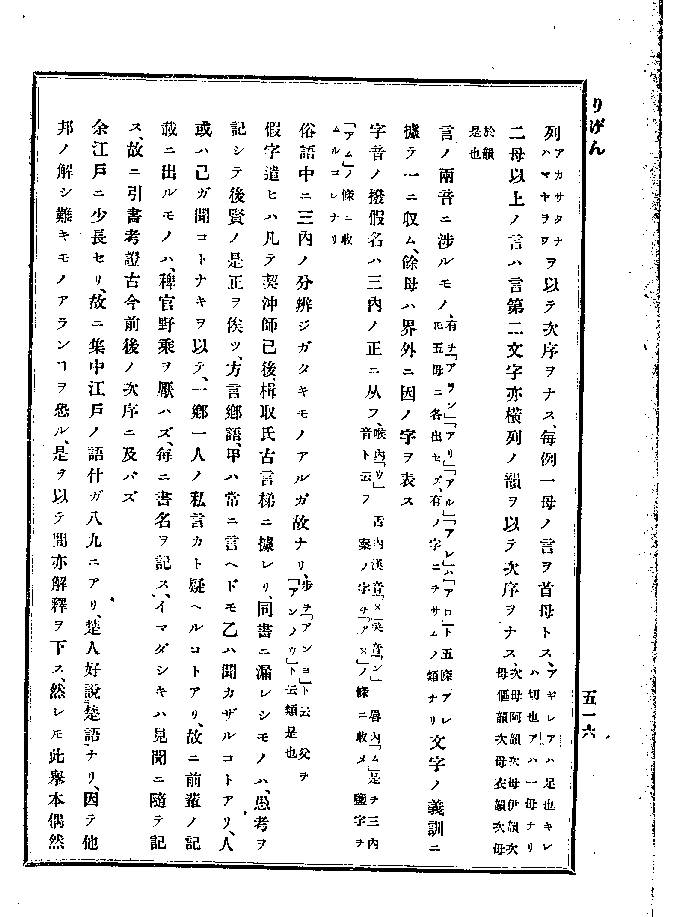 りげん
五一六
列アカサタナハマヤラワヲ以テ次序ヲナス、毎例一母ノ言ヲ首母トス、アギレアハ足也キレハ切也アハ一母ナリ
二母以上ノ言ハ言第二文字亦横列ノ韻ヲ以テ次序ヲナス、次母阿韻次母伊韻次母傴韻次母衣韻次母
於韻是也
言ノ兩音ニ渉ルモノ、有チ「アラン」「アリ」「アル」「アレ」ハ「アロ」ト五條アレ正五母ニ各出セズ、有ノ字ニテサムノ類ナリ文字ノ義訓ニ
據テ一ニ収ム、餘母ハ界外ニ因ノ字ヲ表ス
字音ノ撥假名ハ三内ノ正ニ从フ、
「アム」ノ條ニ收ムルコレナリ
俗語中ニ三内ノ分辨ジガタキモノアルガ故ナリ、歩チ「アンヨ」ト云父ヲ「アンノウ」ト云類是也
假字遣ヒハ凡テ契沖師已後、楫取氏古言梯ニ據レリ、同書ニ漏レシモノハ、愚考ヲ
記シテ後賢ノ是正ヲ俟ツ、方言鄕語、甲ハ常ニ言ヘドモ乙ハ聞カザルコトアリ、人
或ハ己ガ聞コトナキヲ以テ、一鄕一人ノ私言カト疑ヘルコトアリ、故ニ前輩ノ記
載ニ出ルモノハ、稗官野乘ヲ厭ハズ、毎ニ書名ヲ記ス、イマダシキハ見聞ニ隨テ記
ス、故ニ引書考證古今前後ノ次序ニ及バズ
余江戸ニ少長セリ、故ニ集中江戸ノ語什ガ八九ニアリ、楚人好説楚語ナリ、因テ他
邦ノ解シ難キモノアランコヲ恐ル、是ヲ以テ間亦解釋ヲ下ス、然レモ此擧本偶然